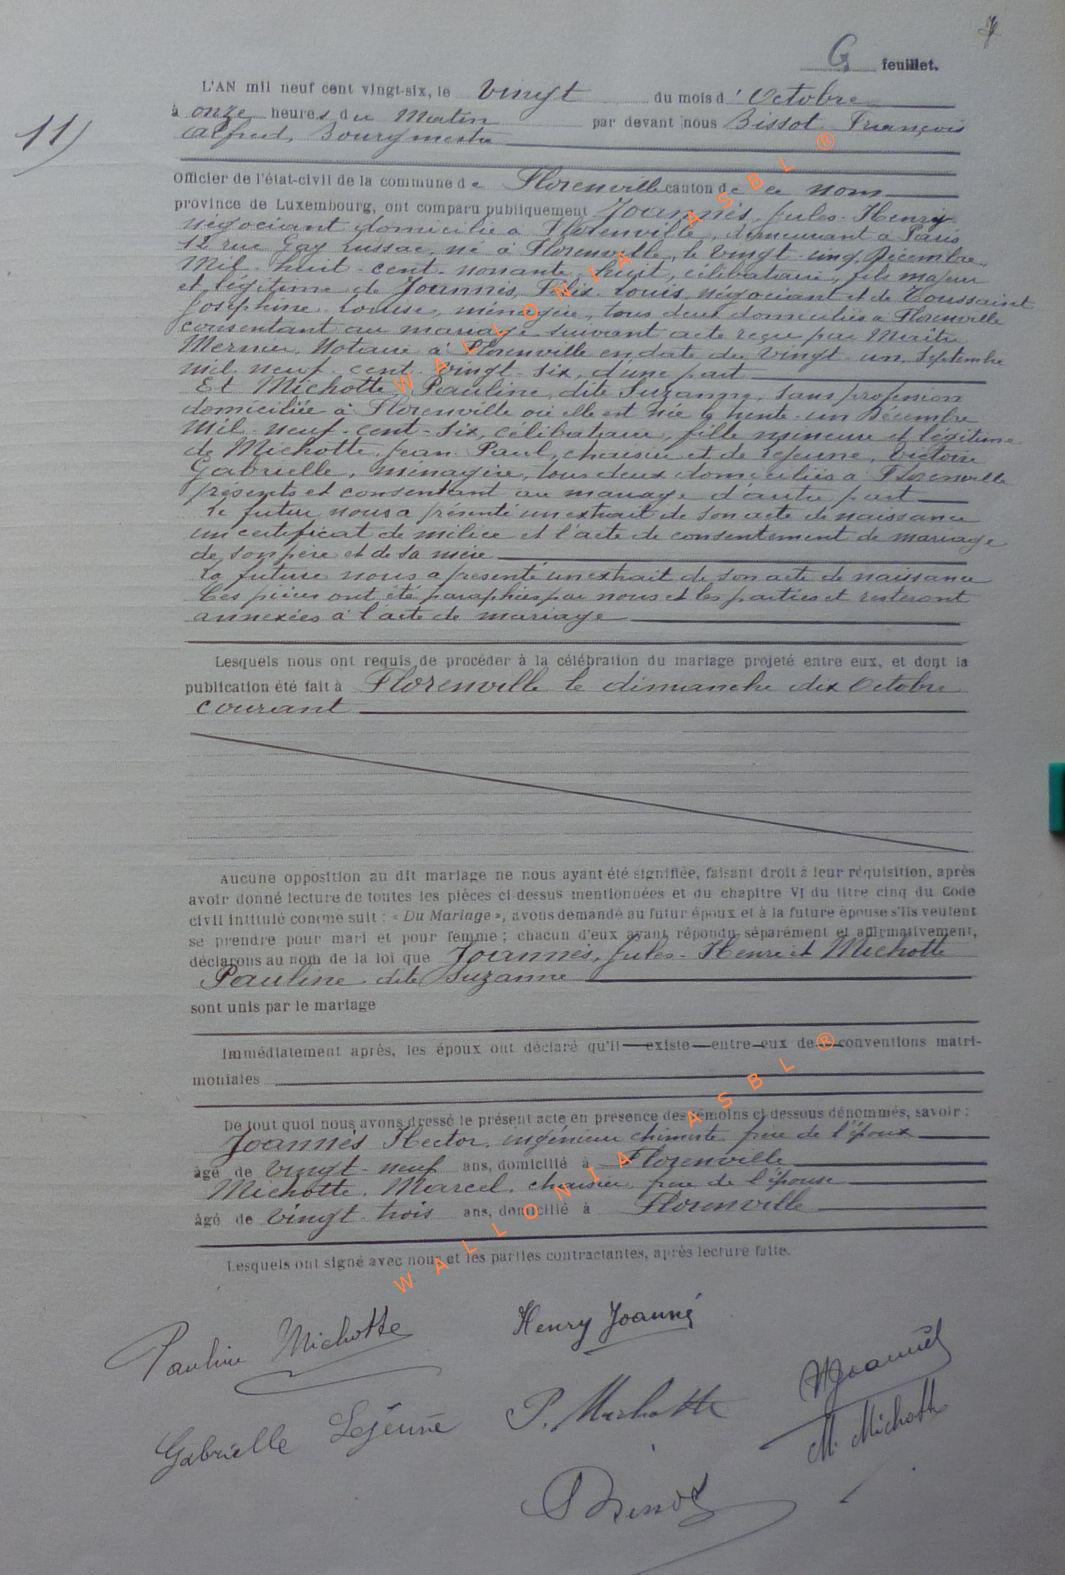 7
6 feuillet.
11)
L'AN mil neuf cent vingt-six, le vingt du mois d'Octobre
à onze heures du Matin par devant nous Bissot François
Alfred, Bourgmestre
Officier de l'état-civil de la commune de Florenville canton de ce nom
province de Luxembourg, ont comparu publiquement Joannès, Jules-Henry
négociant domicilié à Florenville, demeurant à Paris
12 rue Gay Lussac, né à Florenville, le vingt cinq Décembre
Mil-huit-cent-nonante-huit, célibataire, fils majeur
et légitime de Joannès, Félix-Louis, négociant et de Toussaint
Josephine-Louise, ménagère, tous deux domiciliés à Florenville
consentant au mariage suivant acte reçu par Maître
Mernier, Notaire à Florenville en date du vingt-un Septembre
mil-neuf-cent-vingt-six, d'une part
Et Michotte, Pauline, dite Suzanne, sans profession
domiciliée à Florenville où elle est née le trente-un Décembre
Mil-neuf-cent-six, célibataire, fille mineure et légitime
de Michotte, Jean-Paul, chaisier et de Lejeune, Victoire
Gabrielle, ménagère, tous deux domiciliés à Florenville
présents et consentant au mariage d'autre part
Le futur nous a présenté un extrait de son acte de naissance
un certificat de milice et l'acte de consentement de mariage
de son père et de sa mère
La future nous a présenté un extrait de son acte de naissance
Ces pièces ont été paraphées par nous et les parties et resteront
annexées à l'acte de mariage
Lesquels nous ont requis de procéder à la célébration du mariage projeté entre eux, et dont la
publication été fait à Florenville le dimanche dix Octobre
courant
Aucune opposition au dit mariage ne nous ayant été signifiée, faisant droit à leur réquisition, après
avoir donné lecture de toutes les pièces ci-dessus mentionnées et du chapitre VI du titre cinq du Code
civil intitulé comme suit : « Du Mariage », avons demandé au futur époux et à la future épouse s'ils veulent
se prendre pour mari et pour femme ; chacun d'eux ayant répondu séparément et affirmativement,
déclarons au nom de la loi que Joannès, Jules-Henri et Michotte
Pauline, dite Suzanne
sont unis par le mariage
Immédiatement après, les époux ont déclaré qu'il existe entre eux de conventions matri-
moniales
De tout quoi nous avons dressé le présent acte en présence des témoins ci dessous dénommés, savoir :
Joannès Hector, ingénieur chimiste, frère de l'époux
âgé de vingt-neuf ans, domicilié à Florenville
Michotte, Marcel, chaisier, frère de l'épouse
âgé de vingt-trois ans, domicilié à Florenville
Lesquels ont signé avec nous et les parties contractantes, après lecture faite.
Pauline Michotte Henry Joannès
HJoannès
Gabrielle Lejeune P. Michotte
M. Michotte
Bissot
WALLONIA ASBL ®
WALLONIA ASBL ®